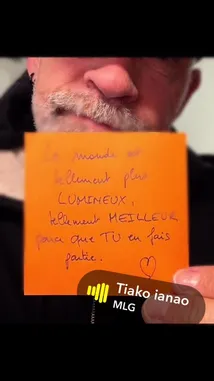 Le monde est
tellement plus
LUMINEUX,
tellement MEILLEUR
parce que TU en fais
partie..
Tiako ianao
MLG